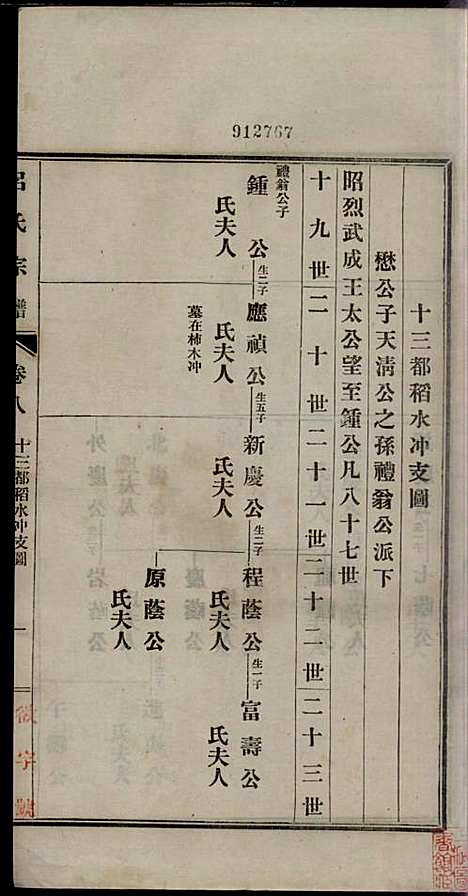 912767
十三都稻水冲支圖
懋公子天清公之孫禮翁公派下
昭烈武成王太公望至鍾公凡八十七世
十九世 二十世 二十一世 二十二世 二十三世
禮翁公子
鍾公 生二子 應禎公 生五子 新慶公 生二子 程蔭公 生一子 富壽公
氏夫人 氏夫人 氏夫人 氏夫人 氏夫人
墓在柿木冲
原蔭公
氏夫人
呂氏宗譜 卷八 十三都稻水冲支圖 一